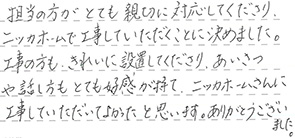 担当の方がとても親切に対応してくださり、
ニッカホームで工事していただくことに決めました。
工事の方も、きれいに設置してくださり、あいさつ
や話し方もとても好感が持て、ニッカホームさんに
工事していただいてよかったと思います。ありがとうござい
ました